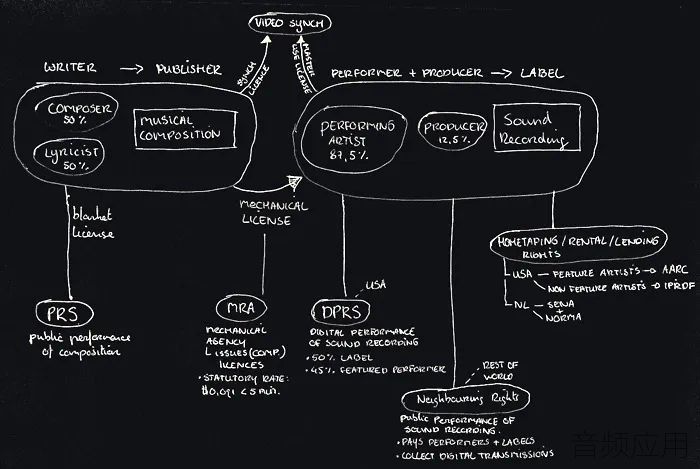 VIDEO SYNCH
SYNCH
LICENCE
MASTER
USE LICENSE
WRITER → PUBLISHER
PERFORMER + PRODUCER → LABEL
COMPOSER
50%
LYRICIST
50%
MUSICAL
COMPOSITION
PERFORMING
ARTIST
87,5%
PRODUCER
12,5%
Sound
Recording
blanket
license
MECHANICAL
LICENSE
HOMETAPING/RENTAL/LENDING
RIGHTS
USA — FEATURE ARTISTS → AARC
NON FEATURE ARTISTS →
NL — SENA
+
NORMA
PRS
public performance
of composition
MRA
MECHANICAL
AGENCY
ISSUES (COMP.)
LICENCES
• STATUTORY RATE:
$0,091 < 5 min.
USA
DPRS
DIGITAL PERFORMANCE
OF SOUND RECORDING
• 50% LABEL
• 45% FEATURED PERFORMER
REST OF
WORLD
Neighbouring Rights
PUBLIC PERFORMANCE OF
SOUND RECORDING.
• PAYS PERFORMERS + LABELS
• COLLECT DIGITAL TRANSMISSIONS
音频应用